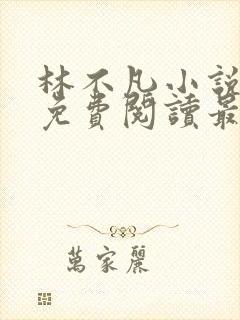 林不凡小說
免費閱讀最
萬家麗